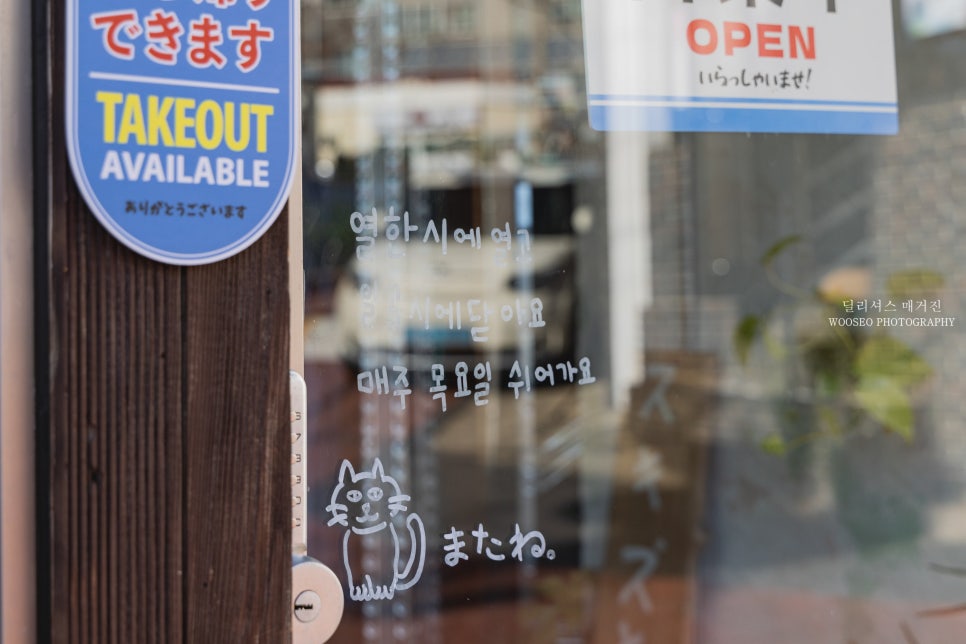 できます
TAKEOUT
AVAILABLE
ありがとうございます
OPEN
いらっしゃいませ!
열한시에 열고
시에 닫아요
매주 목요일 쉬어가요
またね。
딜리셔스 매거진
WOOSEO PHOTOGRAPHY